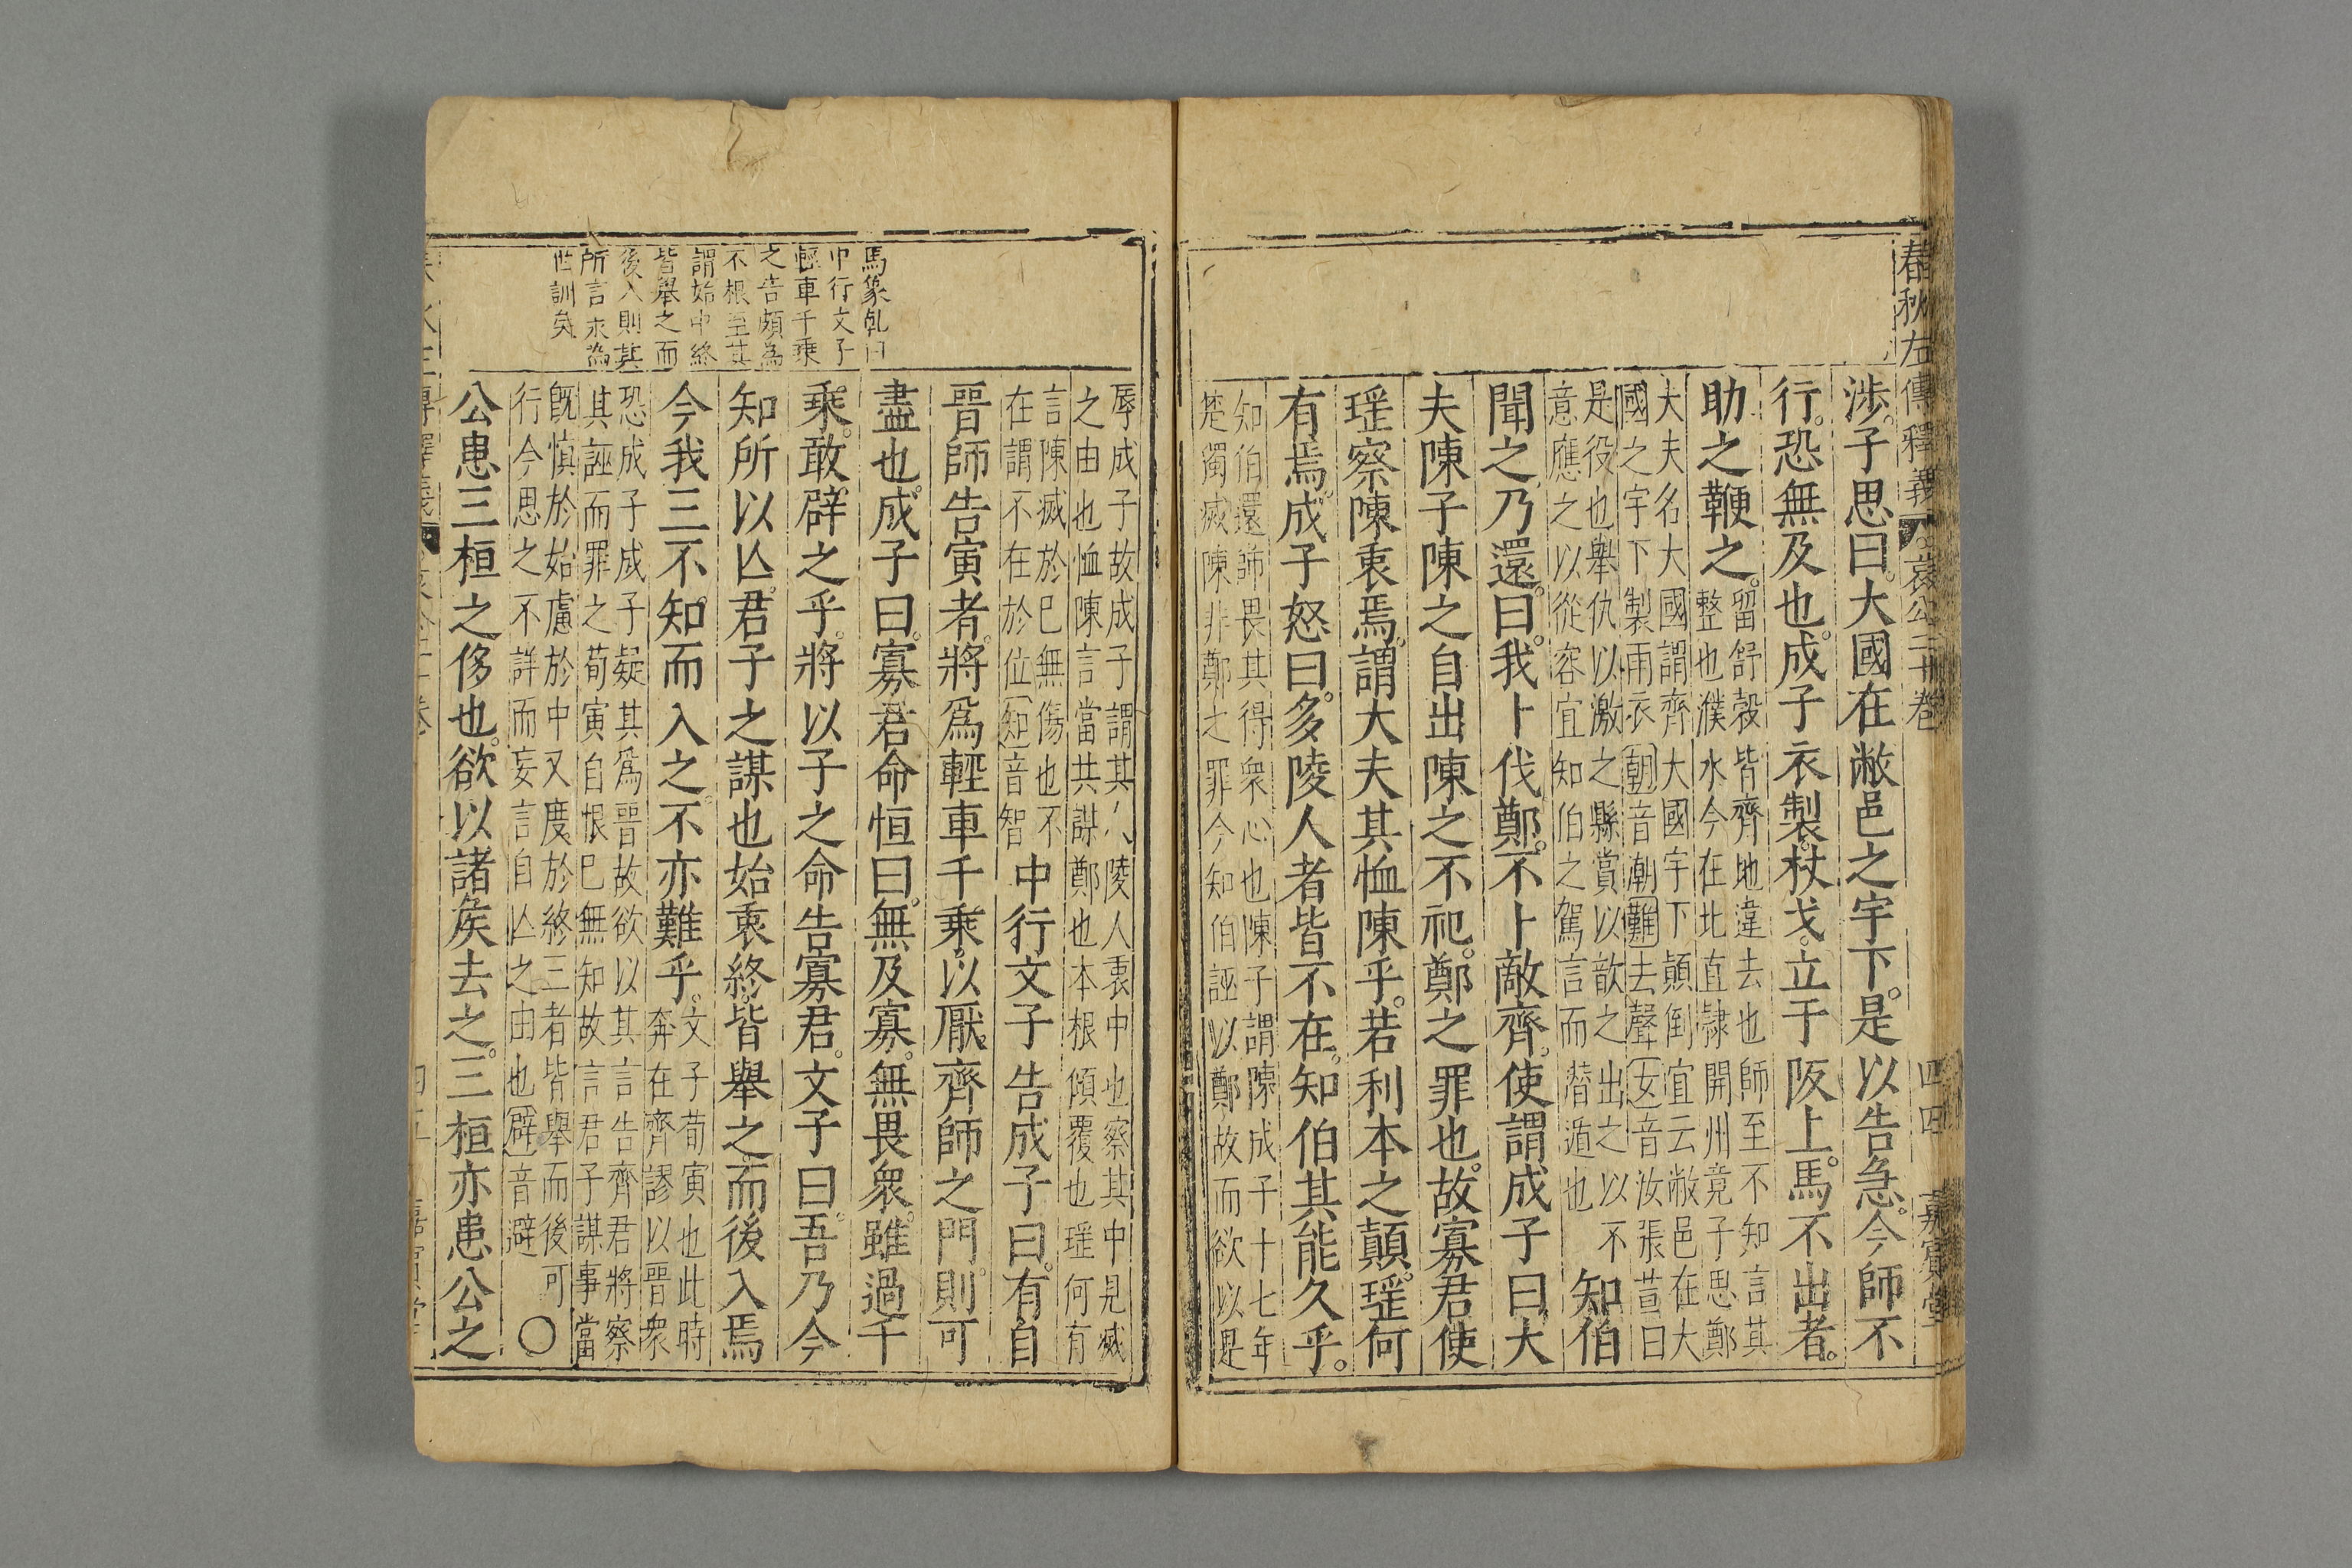 春秋左傳釋義 哀公二十卷 四四 嘉賓堂
涉子思曰大國在敝邑之宇下是以告急今師不
行恐無及也成子衣製杖戈立于阪上馬不出者
助之鞭之留舒榖皆齊地違去也師至不知言其
整也濮水今在北直隷開州竟子思鄭
大夫名大國謂齊大國宇下顛倒宜云敝邑在大
國之宇下製雨衣朝音潮難去聲女音汝張萱曰
是役也舉仇以激之縣賞以歆之出之以不
意應之以從容宜知伯之駕言而潜遁也
知伯
聞之乃還曰我卜伐鄭不卜敵齊使謂成子曰大
夫陳子陳之自出陳之不祀鄭之罪也故寡君使
瑶察陳衷焉謂大夫其恤陳乎若利本之顛瑶何
有焉成子怒曰多陵人者皆不在知伯其能久乎
知伯還師畏其得衆心也陳子謂陳成子十七年
楚獨滅陳非鄭之罪今知伯誣以鄭故而欲以是
馬篆乹曰
中行文子
輕車千乘
之告頗為
不根至其
謂始中終
皆舉之而
後入則其
所言末為
世訓矣
辱成子故成子謂其陵人衷中也察其中見滅
之由也恤陳言當共誅鄭也本根傾覆也瑶何有
言陳滅於巳無傷也不
在謂不在於位知音智
中行文子告成子曰有自
晉師告寅者將爲輕車千乘以厭齊師之門則可
盡也成子曰寡君命恒曰無及寡無畏衆雖過千
乘敢辟之乎將以子之命告寡君文子曰吾乃今
知所以亾君子之謀也始衷終皆舉之而後入焉
今我三不知而入之不亦難乎文子荀寅也此時
奔在齊謬以晉衆
恐成子成子疑其爲晉故欲以其言告齊君將察
其誣而罪之荀寅自恨巳無知故言君子謀事當
旣慎於始慮於中又度於終三者皆舉而後可
行今思之不詳而妄言自亾之由也辟音避
○
公患三桓之侈也欲以諸矦去之三桓亦患公之